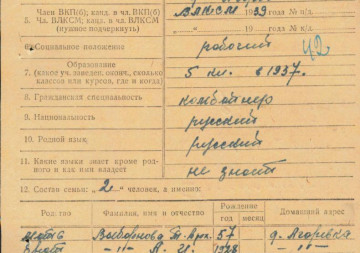 Член ВКП(б), канд. в чл. ВКП(б) ВЛКСМ 1939 года № ч/д.
5. Чл. ВЛКСМ, канд. в чл. ВЛКСМ 19 года № ч/д.
(нужное подчеркнуть)
6. Социальное положение рабочий 42
Образование
7. (какое уч. заведен. оконч., сколько классов или курсов, где и когда) 5 кл. в 1937.
8. Гражданская специальность комбайнер
9. Национальность русский
10. Родной язык русский
11. Какие языки знает кроме родного и как ими владеет не знает
12. Состав семьи: „2" человек, а именно:
Родство Фамилия, имя и отчество Рождение год месяц Домашний адрес
мать 57 д.
А. И. 1928 —"—